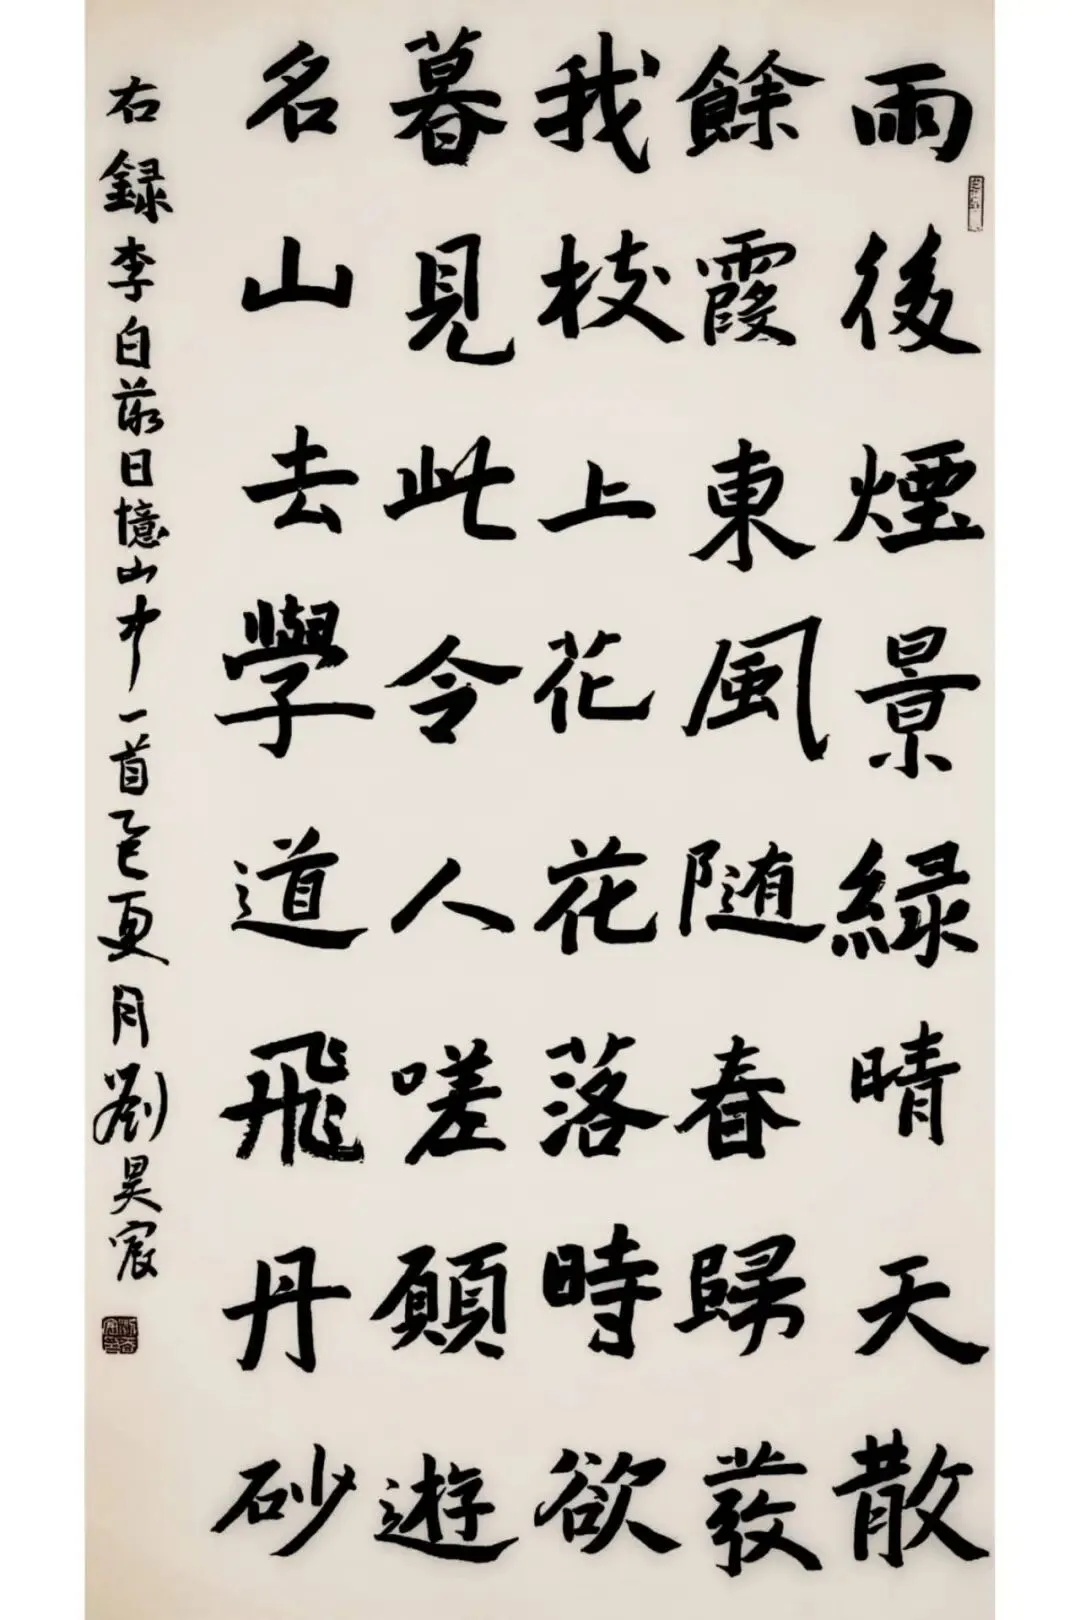 雨後煙景緑晴天散
餘霞東風随春歸發
我枝上花花落時欲
暮見此令人嗟願遊
名山去學道飛丹砂
右録李白落日憶山中一首乙巳夏月劉昊宸